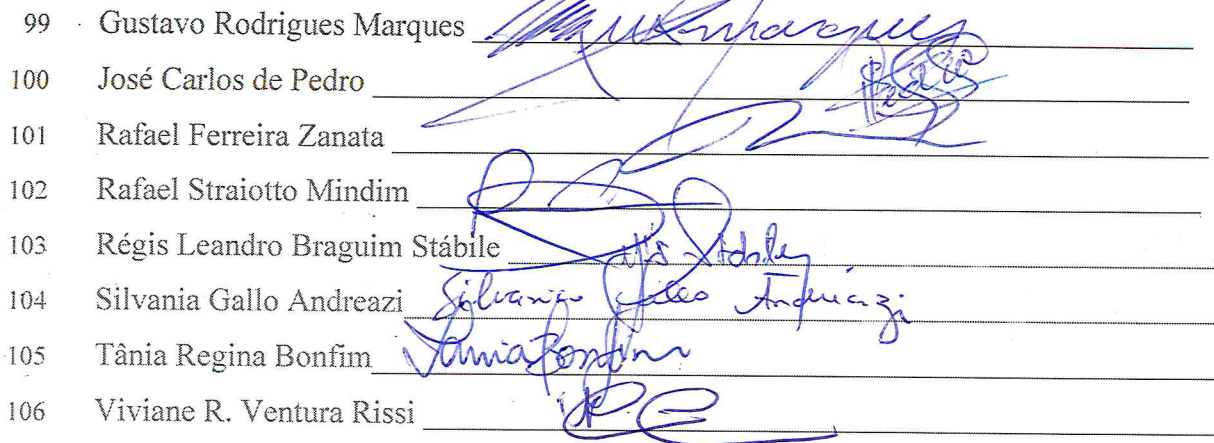 99 Gustavo Rodrigues Marques
100 José Carlos de Pedro
101 Rafael Ferreira Zanata
102 Rafael Straiotto Mindim
103 Régis Leandro Braguim Stábile
104 Silvania Gallo Andreazi Silvania Gallo Andreazi
105 Tânia Regina Bonfim Tania Bonfim
106 Viviane R. Ventura Rissi